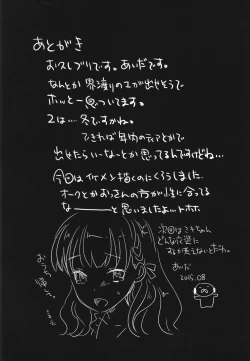 あとがき
お久しぶりです。あいだです。
なんとか界渡りの2が出せそうで
ホッと一息ついてます。
2は…冬ですかね。
できれば年内のティアとかで
出せたらいーなーとか思ってるんですけどね…
今回はイケメン描くのにくろうしました。
オークとかおっさんの方が性に合ってる
なーーーと思いましたよートホホ
次回はミキちゃん
どんな衣装に
するか考えないとナー
あいだ
2015.08